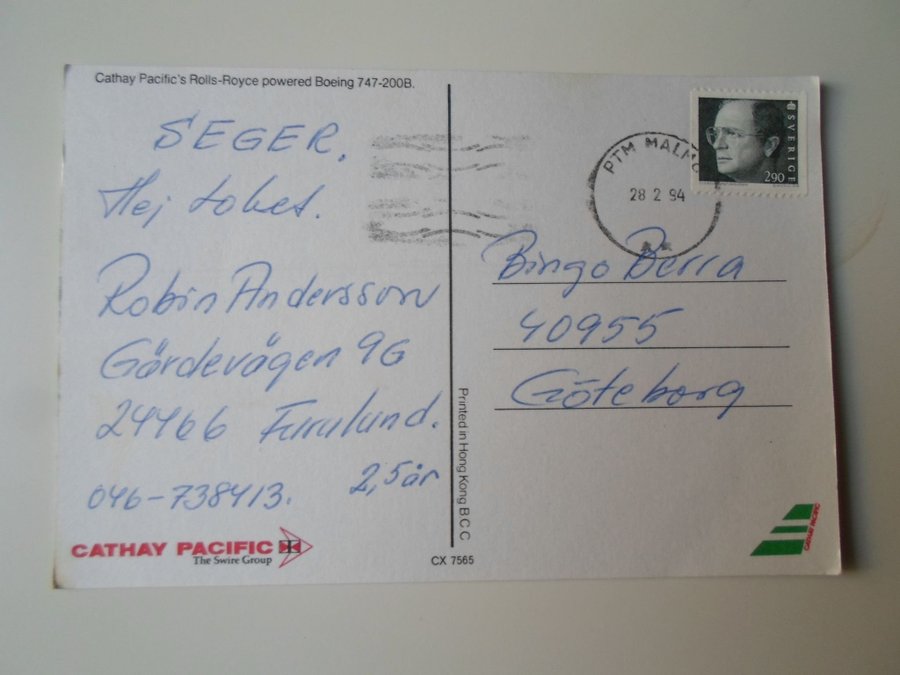 Cathay Pacific's Rolls-Royce powered Boeing 747-200B.
SEGER.
Hej tokes.
Robin Andersson
Gärdevägen 9G
24466 Furulund.
046-738413.
2,5år
CATHAY PACIFIC
The Swire Group
Printed in Hong Kong B C C
CX 7565
PTM MALMÖ
28 2 94
SVERIGE
290
Bingo Berra
40955
Göteborg
CATHAY PACIFIC